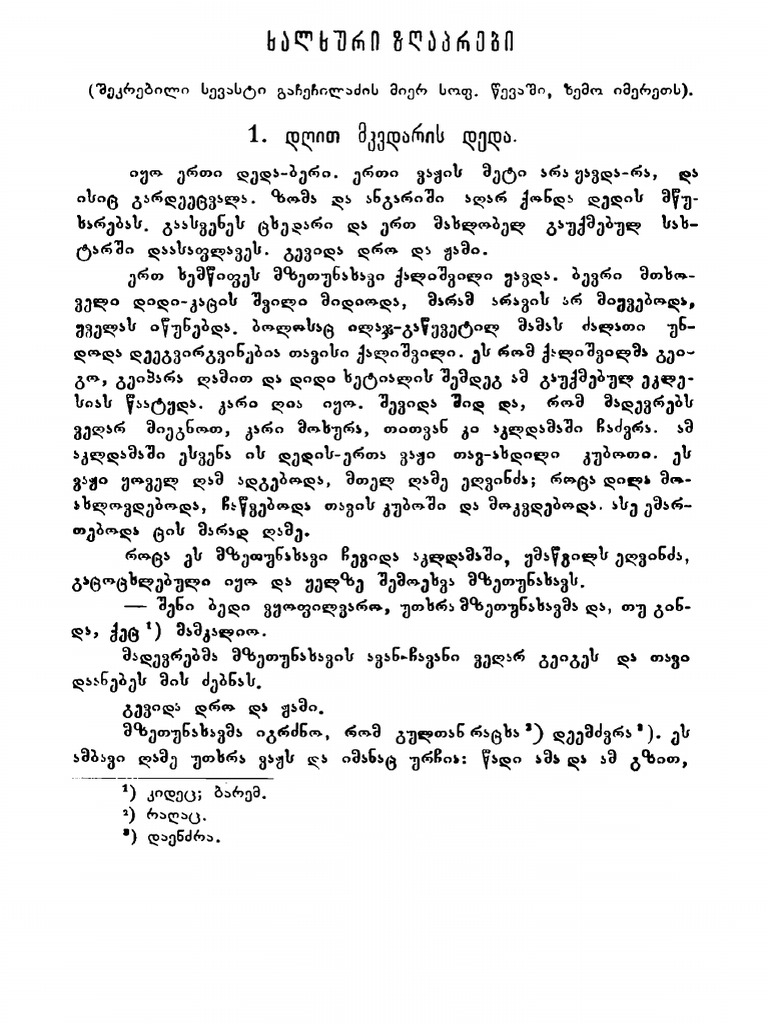 ხალხური ზღაპრები
(შეკრებილი სევასტი გაჩეჩილაძის მიერ სოფ. წევაში, ზემო იმერეთს).
1. დღით მკვდარის დედა.
იყო ერთი დედა-ბერი. ერთი ვაჟის მეტი არა ყავდა-რა, და
ისიც გარდეეცვალა. ზომა და ანგარიში აღარ ქონდა დედის მწუ-
ხარებას. გაასვენეს ცხედარი და ერთ მახლობელ გაუქმებულ სახ-
ტარში დაასაფლავეს. გევიდა დრო და ჟამი.
ერთ ხემწიფეს მზეთუნახავი ქალიშვილი ყავდა. ბევრი მთხო-
ველი დიდი-კაცის შვილი მიდიოდა, მარამ არავის არ მიყვებოდა,
ყველას იწუნებდა. ბოლოსაც ილაჯ-გაწევეტილ მამას ძალათი უნ-
დოდა დეეგვირგვინებია თავისი ქალიშვილი. ეს რომ ქალიშვილმა გეი-
გო, გეიპარა ღამით და დიდი ხეტიალის შემდეგ ამ გაუქმებულ ეკლე-
სიას წაატყდა. კარი ღია იყო. შევიდა შიდ და, რომ მადევრებს
ვეღარ მიეგნოთ, კარი მოხურა, თითვან კი აკლდამაში ჩაძვრა. ამ
აკლდამაში ესვენა ის დედის-ერთა ვაჟი თავ-ახდილი კუბოთი. ეს
ვაჟი ყოველ ღამ ადგებოდა, მთელ ღამე ეღვინძა; როცა დილა მო-
ახლოვდებოდა, ჩაწვებოდა თავის კუბოში და მოკვდებოდა. ასე ემარ-
თებოდა ცის მარად ღამე.
როცა ეს მზეთუნახავი ჩევიდა აკლდამაში, ყმაწვილს ეღვინძა,
გაცოცხლებული იყო და ყელზე შემოეხვა მზეთუნახავს.
— შენი ბედი ვყოფილვარო, უთხრა მზეთუნახავმა და, თუ გინ-
და, ქეც ¹) მამკალიო.
მადევრებმა მზეთუნახავის ავან-ჩავანი ვეღარ გეიგეს და თავი
დაანებეს მის ძებნას.
გევიდა დრო და ჟამი.
მზეთუნახავმა იგრძნო, რომ გულთან რაცხა ²) დეემძვრა ³). ეს
ამბავი ღამე უთხრა ვაჟს და იმანაც ურჩია: წადი ამა და ამ გზით,
¹) კიდეც; ბარემ.
²) რაღაც.
³) დაენძრა.